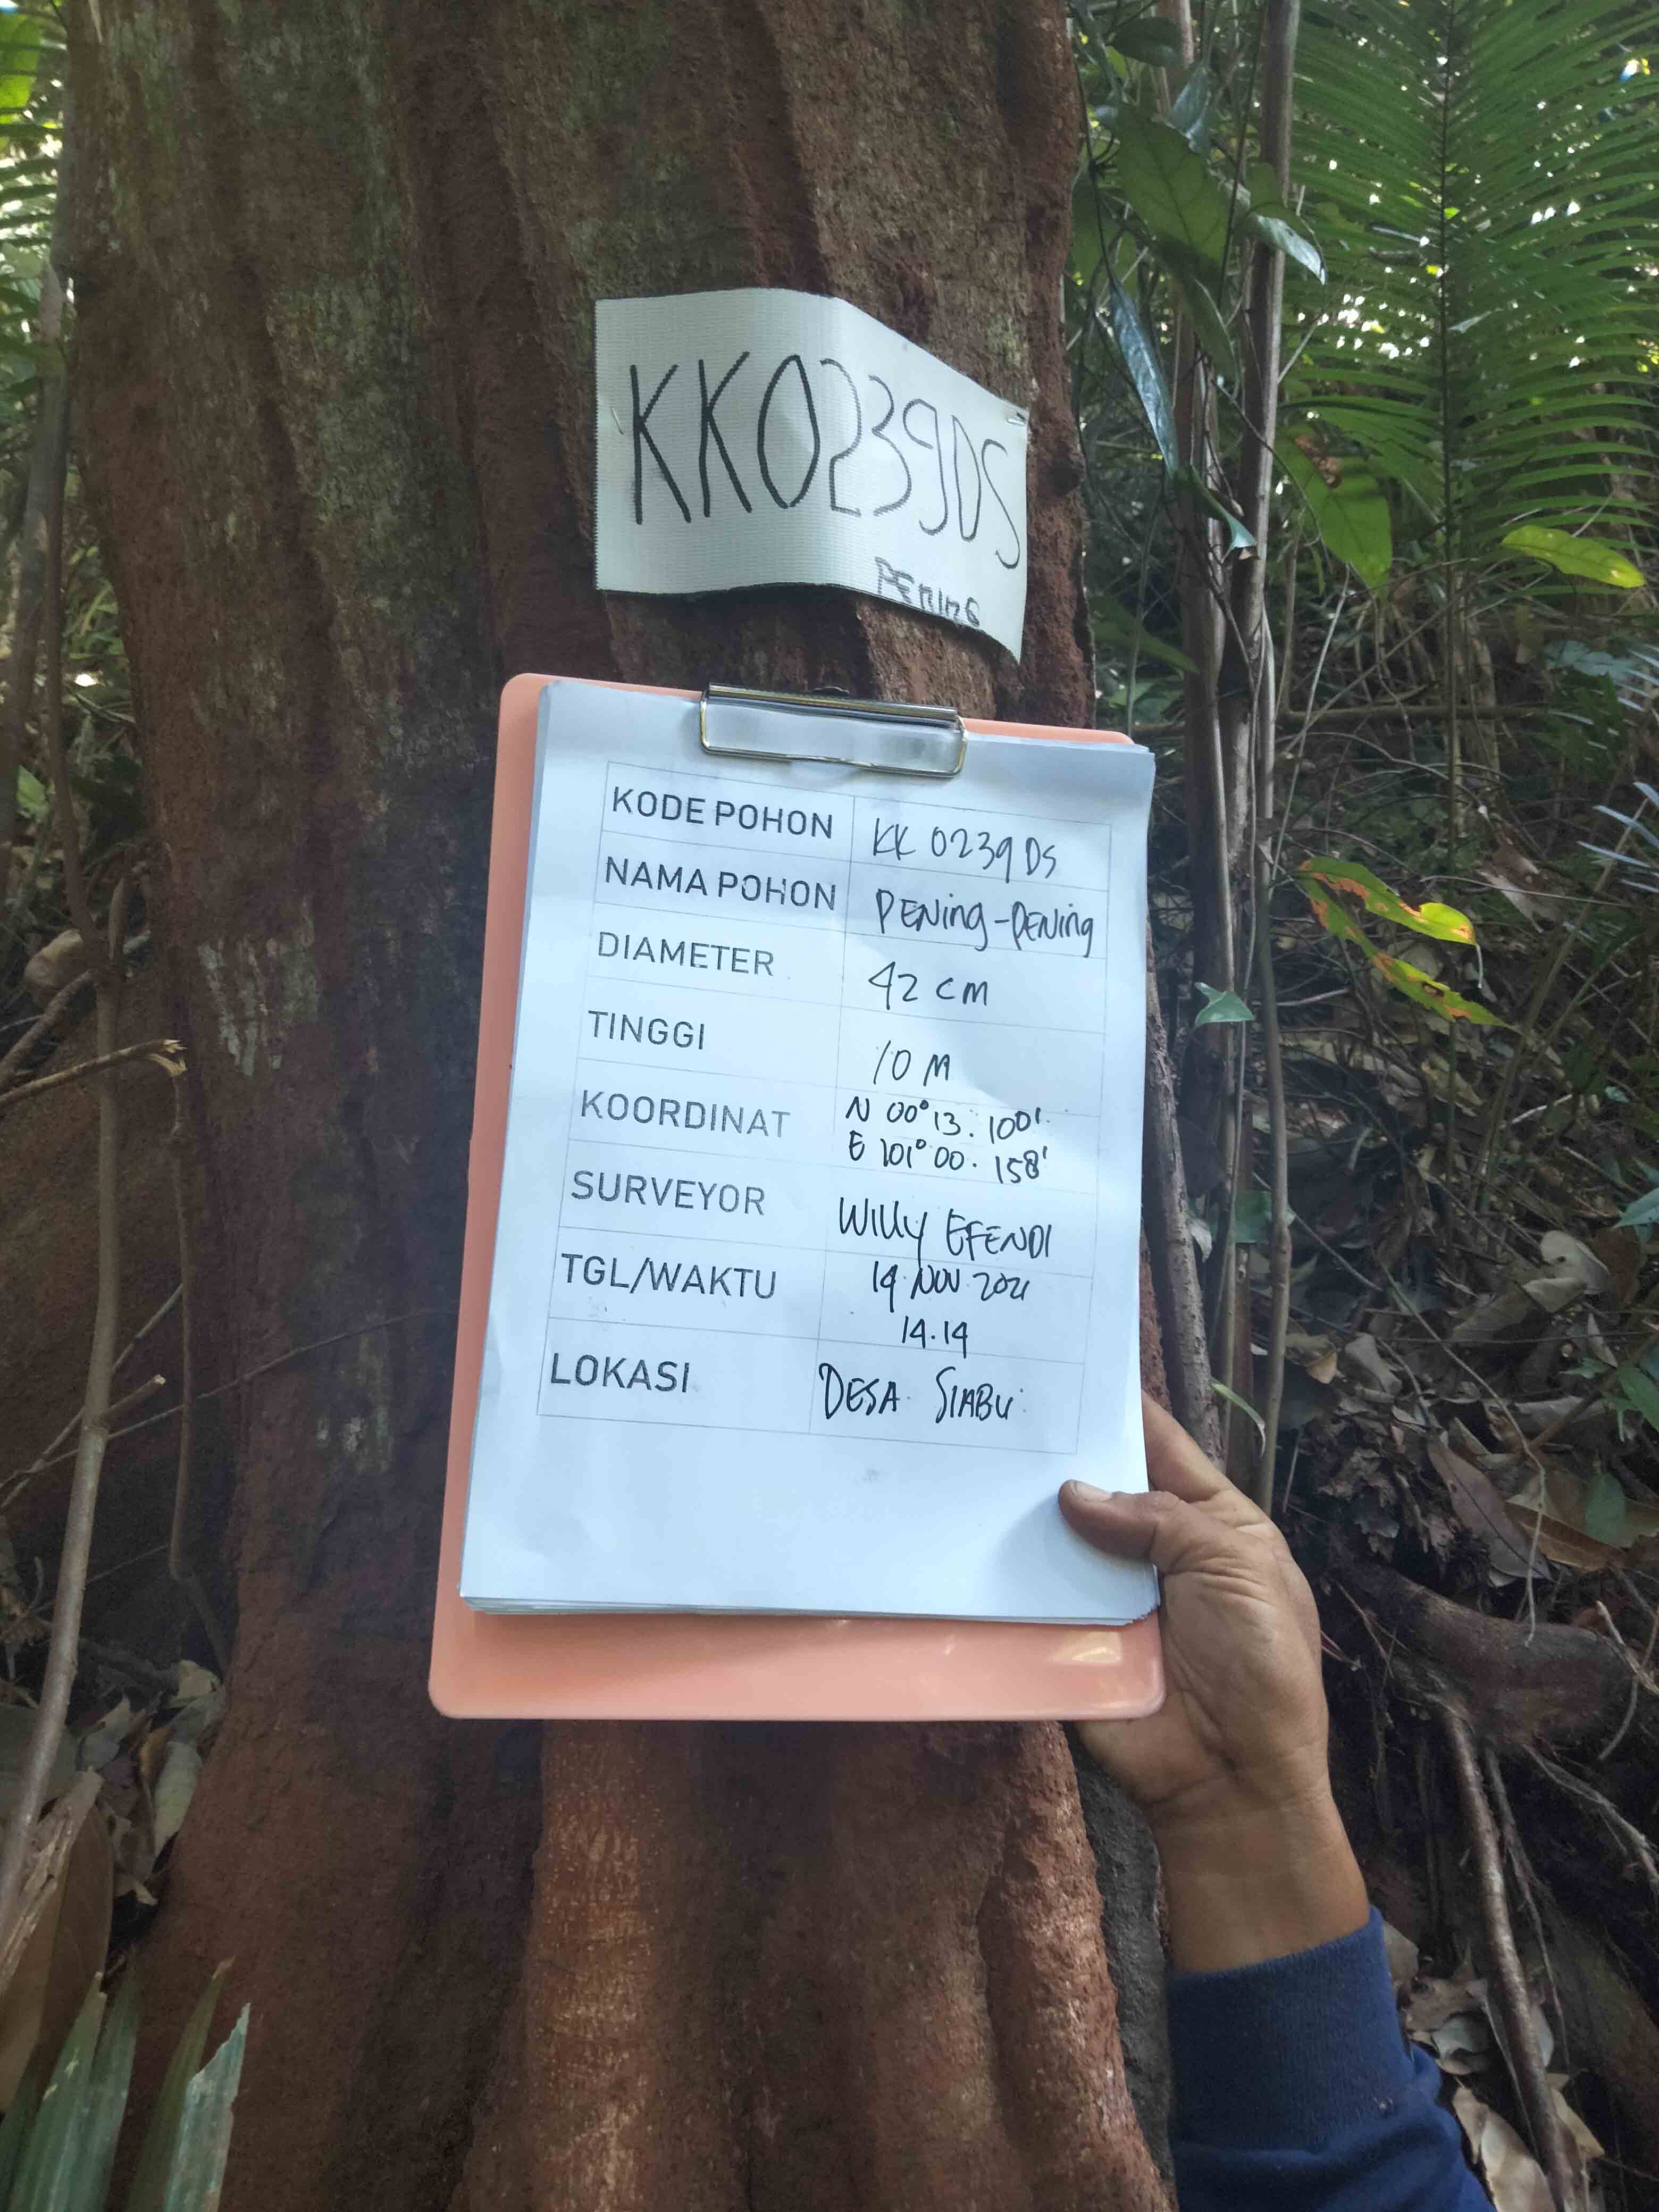 KK0239DS
PENING
KODE POHON KK 0239 DS
NAMA POHON PENing-PENing
DIAMETER 42 cm
TINGGI 10 M
KOORDINAT N 00° 13. 100'
E 101° 00. 158'
SURVEYOR Willy EFENDI
TGL/WAKTU 14 NOV 2021
14.14
LOKASI DESA SIABU